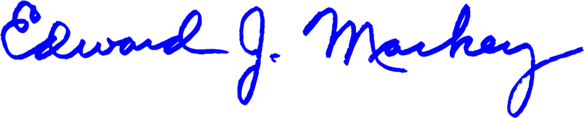 Edward J. Markey